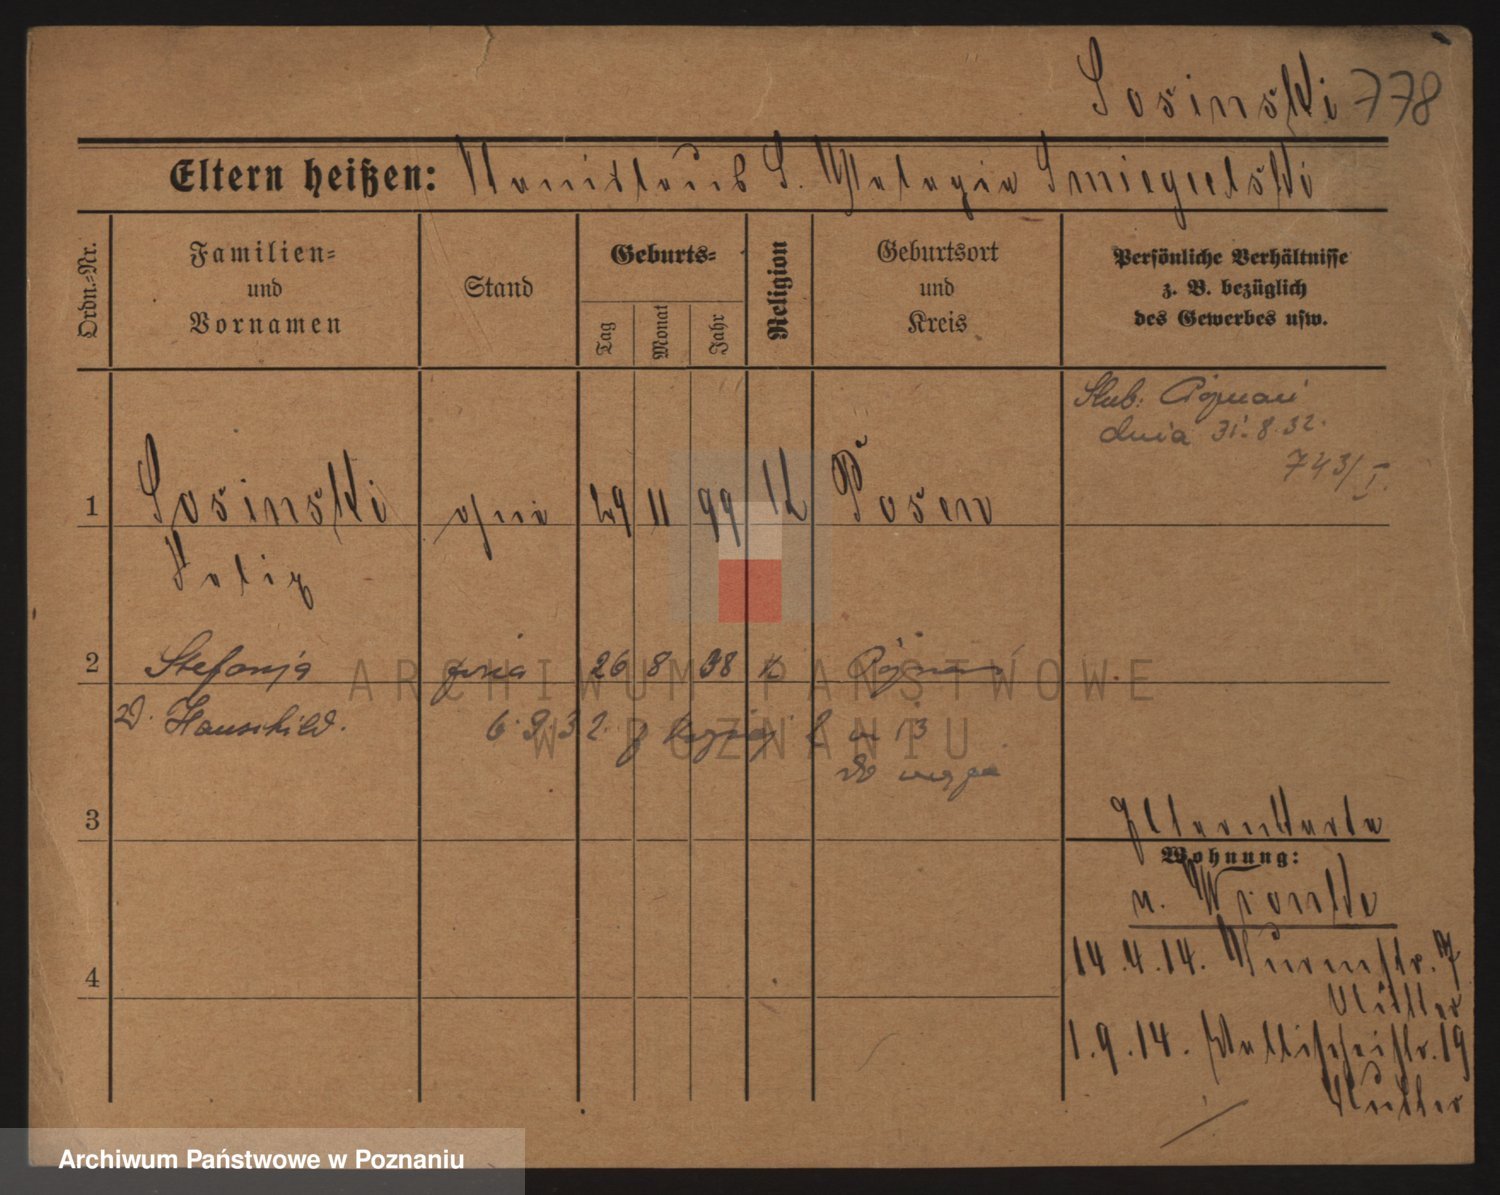 Sosinski 778
Eltern heißen: Stanislaus S. Pelagia Smiegielski
Ordn.-Nr.
Familien-
und
Vornamen
Stand
Geburts-
Tag
Monat
Jahr
Religion
Geburtsort
und
Kreis
Persönliche Verhältnisse
z. B. bezüglich
des Gewerbes usw.
Ślub: Poznań
dnia 31.8.32.
743/I.
1 Sosinski 29 11 99 Posen
Felix
2 Stefanja żona 26 8 38 k Poznań
Hauschild.
6.9.32
do męża
3
Elternkarte
Wohnung:
u. Wronke
14.4.14. Turmstr. 7
Mutter
4
1.9.14. Wallischeistr. 19
Mutter
ARCHIWUM PAŃSTWOWE
W POZNANIU
Archiwum Państwowe w Poznaniu